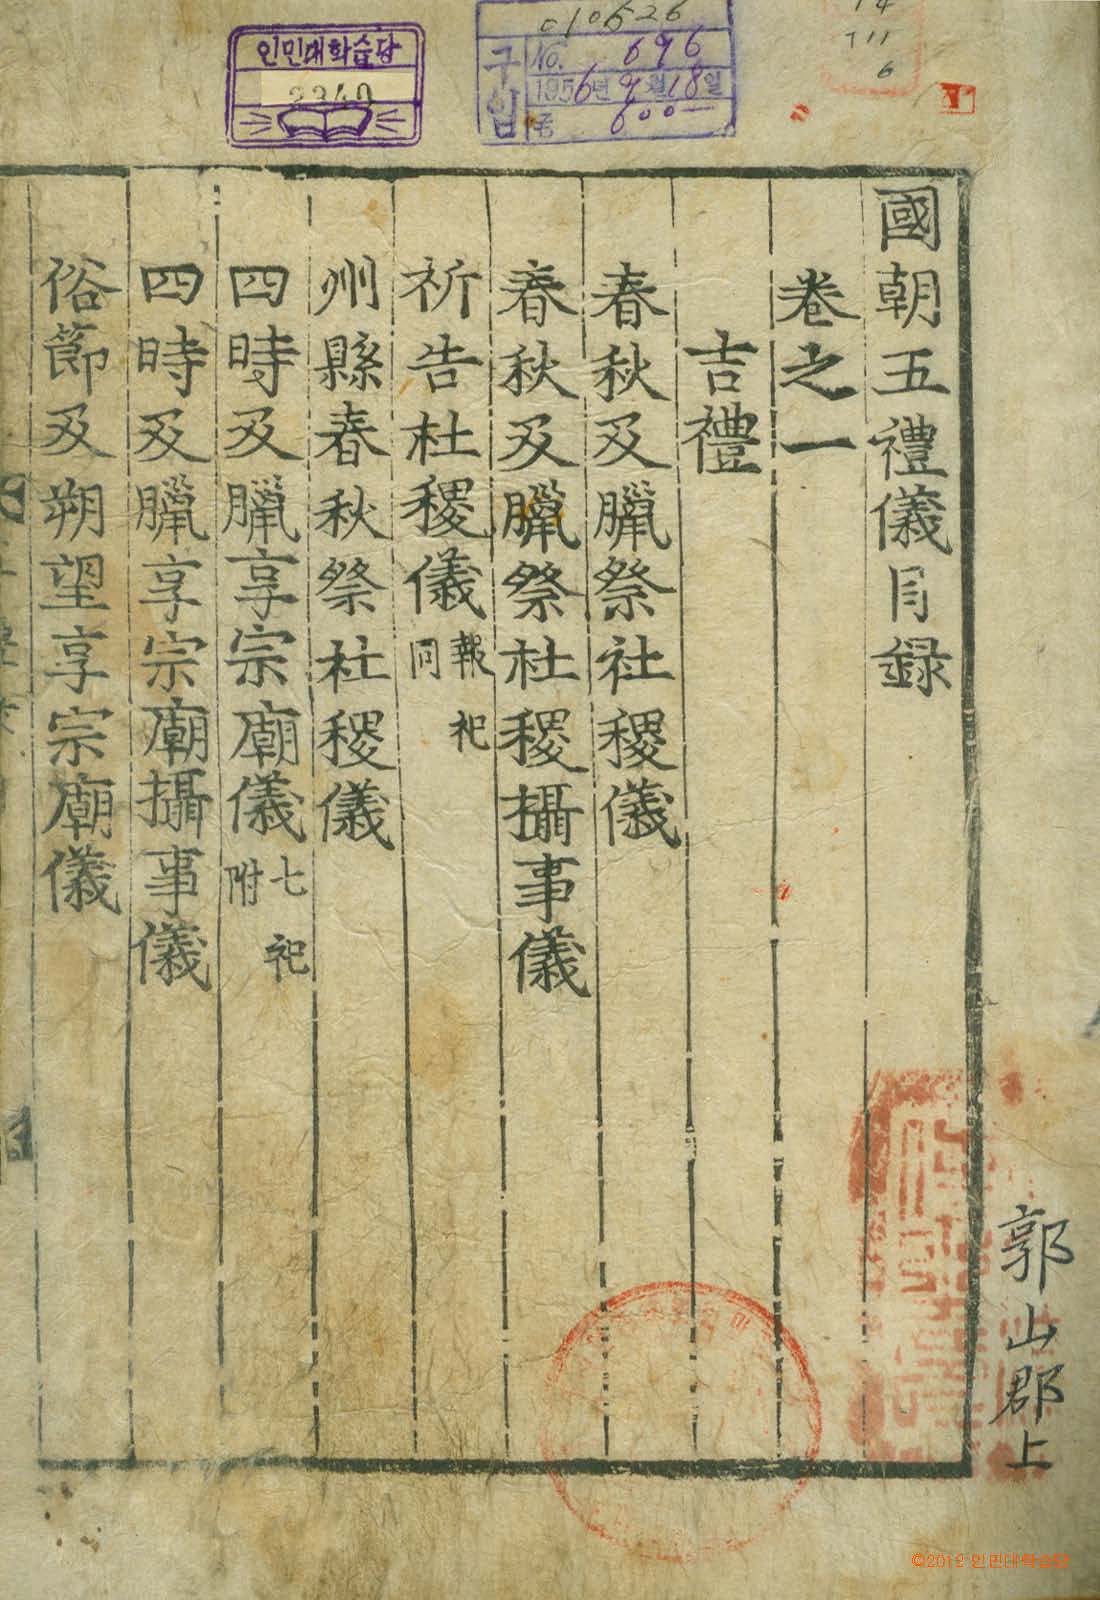 인민대학습당
2340
010526
구입
No. 696
1956년 9월 18일
600—
國朝五禮儀目録
卷之一
吉禮
春秋及臘祭社稷儀
春秋及臘祭社稷攝事儀
祈告社稷儀 報祀同
州縣春秋祭社稷儀
四時及臘享宗廟儀 七祀附
四時及臘享宗廟攝事儀
俗節及朔望享宗廟儀
郭山郡上
©2012 인민대학습당